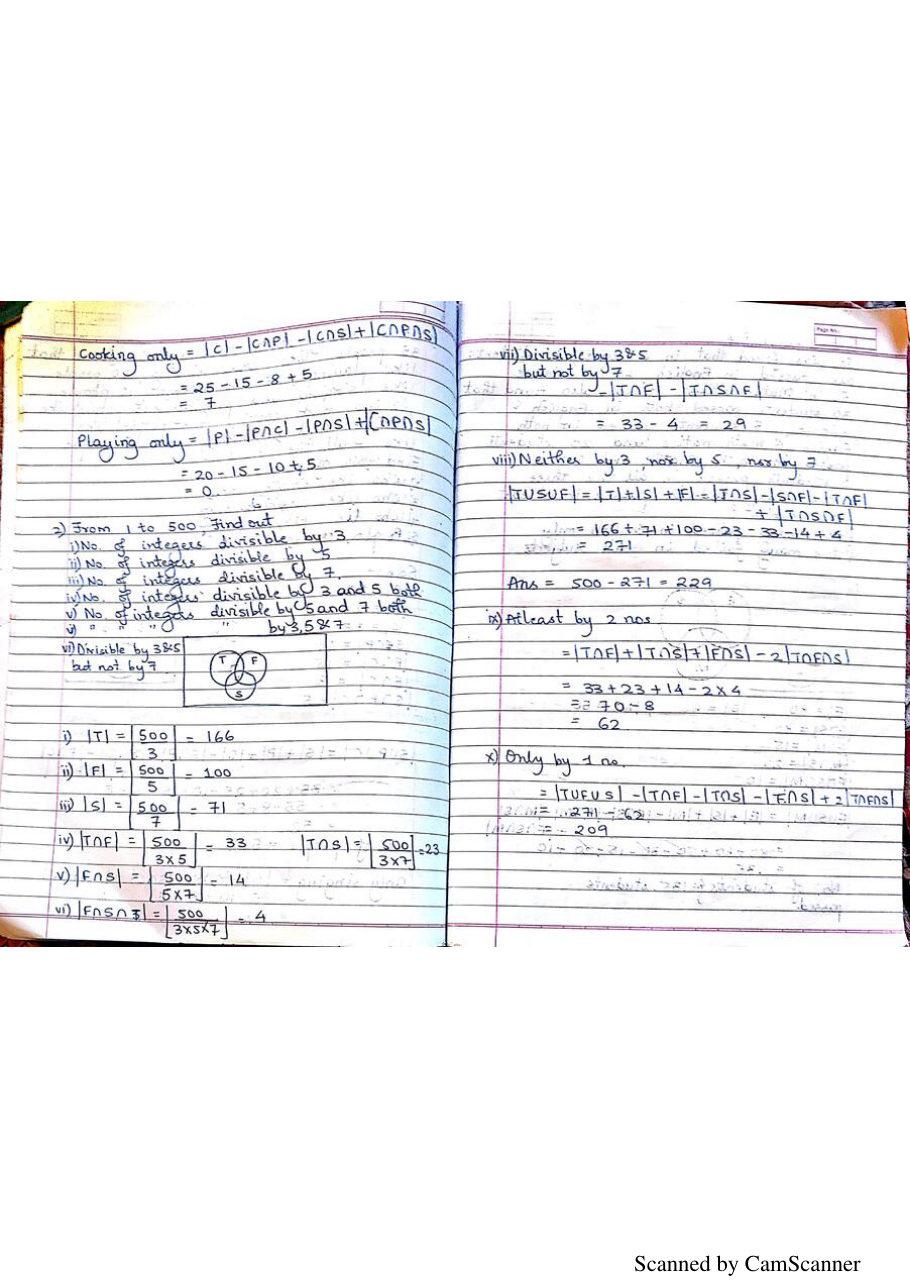 Cooking only = |C| - |C∩P| - |C∩S| + |C∩P∩S|
= 25 - 15 - 8 + 5
= 7
Playing only = |P| - |P∩C| - |P∩S| + |C∩P∩S|
= 20 - 15 - 10 + 5
= 0
2) From 1 to 500, Find out
i) No. of integers divisible by 3
ii) No. of integers divisible by 5
iii) No. of integers divisible by 7.
iv) No. of integers divisible by 3 and 5 both
v) No. of integers divisible by 5 and 7 both
vi) " " " " by 3,5 & 7
vi) Divisible by 3&5
but not by 7
T F
S
i) |T| = ⌊500/3⌋ = 166
ii) |F| = ⌊500/5⌋ = 100
iii) |S| = ⌊500/7⌋ = 71
iv) |T∩F| = ⌊500/3×5⌋ = 33 |T∩S| = ⌊500/3×7⌋ = 23
v) |F∩S| = ⌊500/5×7⌋ = 14
vi) |F∩S∩T| = ⌊500/3×5×7⌋ = 4
Page No.
vii) Divisible by 3&5
but not by 7
= |T∩F| - |T∩S∩F|
= 33 - 4 = 29
viii) Neither by 3, nor by 5, nor by 7
|TUSUF| = |T|+|S|+|F| - |T∩S| - |S∩F| - |T∩F|
+ |T∩S∩F|
= 166 + 71 + 100 - 23 - 33 - 14 + 4
= 271
Ans = 500 - 271 = 229
ix) Atleast by 2 nos
= |T∩F| + |T∩S| + |F∩S| - 2|T∩F∩S|
= 33 + 23 + 14 - 2×4
= 70 - 8
= 62
x) Only by 1 no.
= |TUFUS| - |T∩F| - |T∩S| - |F∩S| + 2|T∩F∩S|
= 271 - 62
= 209
Scanned by CamScanner